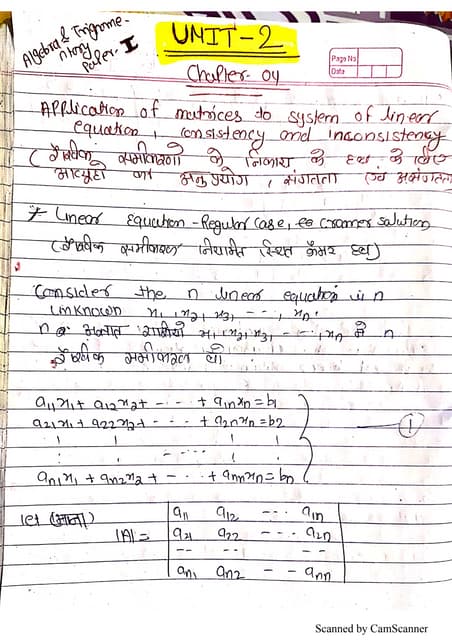 Algebra & Trigonome-
ntory
Paper- I
UNIT-2
Page No
Date
Chapter- 04
Application of matrices to system of linear
equation, consistency and inconsistency
(रैखिक समीकरणो के निकाय के हल के लिए
आव्यूहो का अनुप्रयोग, संगतता एवं असंगतता
* Linear Equation-Regular Case, Cramer solution
(रैखिक समीकरण नियमित स्थित क्रैमर हल)
Consider the n linear equation in n
unknown x₁, x₂, x₃, - - -, xₙ.
n अज्ञात राशियो x₁, x₂, x₃, - - -, xₙ मे n
रैखिक समीकरण
a₁₁x₁ + a₁₂x₂ + - - - + a₁ₙxₙ = b₁
a₂₁x₁ + a₂₂x₂ + - - - + a₂ₙxₙ = b₂ - - - ①
aₙ₁x₁ + aₙ₂x₂ + - - - + aₙₙxₙ = bₙ
let (माना)
|A| = | a₁₁ a₁₂ - - - a₁ₙ |
| a₂₁ a₂₂ - - - a₂ₙ |
| -- -- - - - -- |
| aₙ₁ aₙ₂ - - aₙₙ |
Scanned by CamScanner